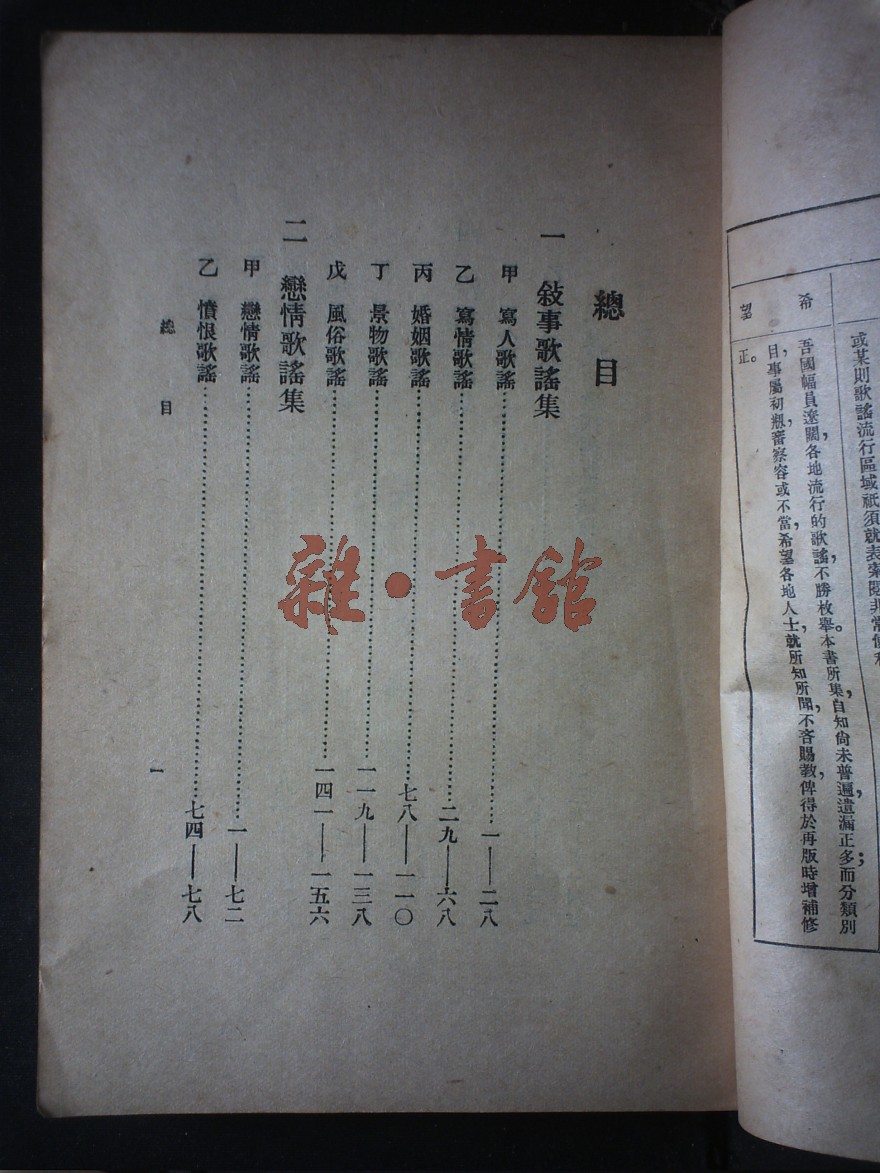 或某則歌謠流行區域祇須就表索隱非常便利
希望
吾國幅員遼闊，各地流行的歌謠，不勝枚舉。本書所集，自知尚未普遍，遺漏正多；而分類別
目，事屬初剏，審察容或不當，希望各地人士，就所知所聞，不吝賜教，俾得於再版時增補修
正。
總目
一 敍事歌謠集
甲 寫人歌謠……一——二八
乙 寫情歌謠……二九——六八
丙 婚姻歌謠……七八——一一〇
丁 景物歌謠……一一九——一三八
戊 風俗歌謠……一四一——一五六
二 戀情歌謠集
甲 戀情歌謠……一——七二
乙 憤恨歌謠……七四——七八
總目
一
雜·書館